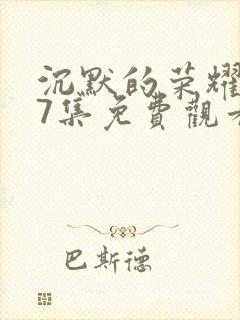 沉默的荣耀
7集免費觀
巴斯德